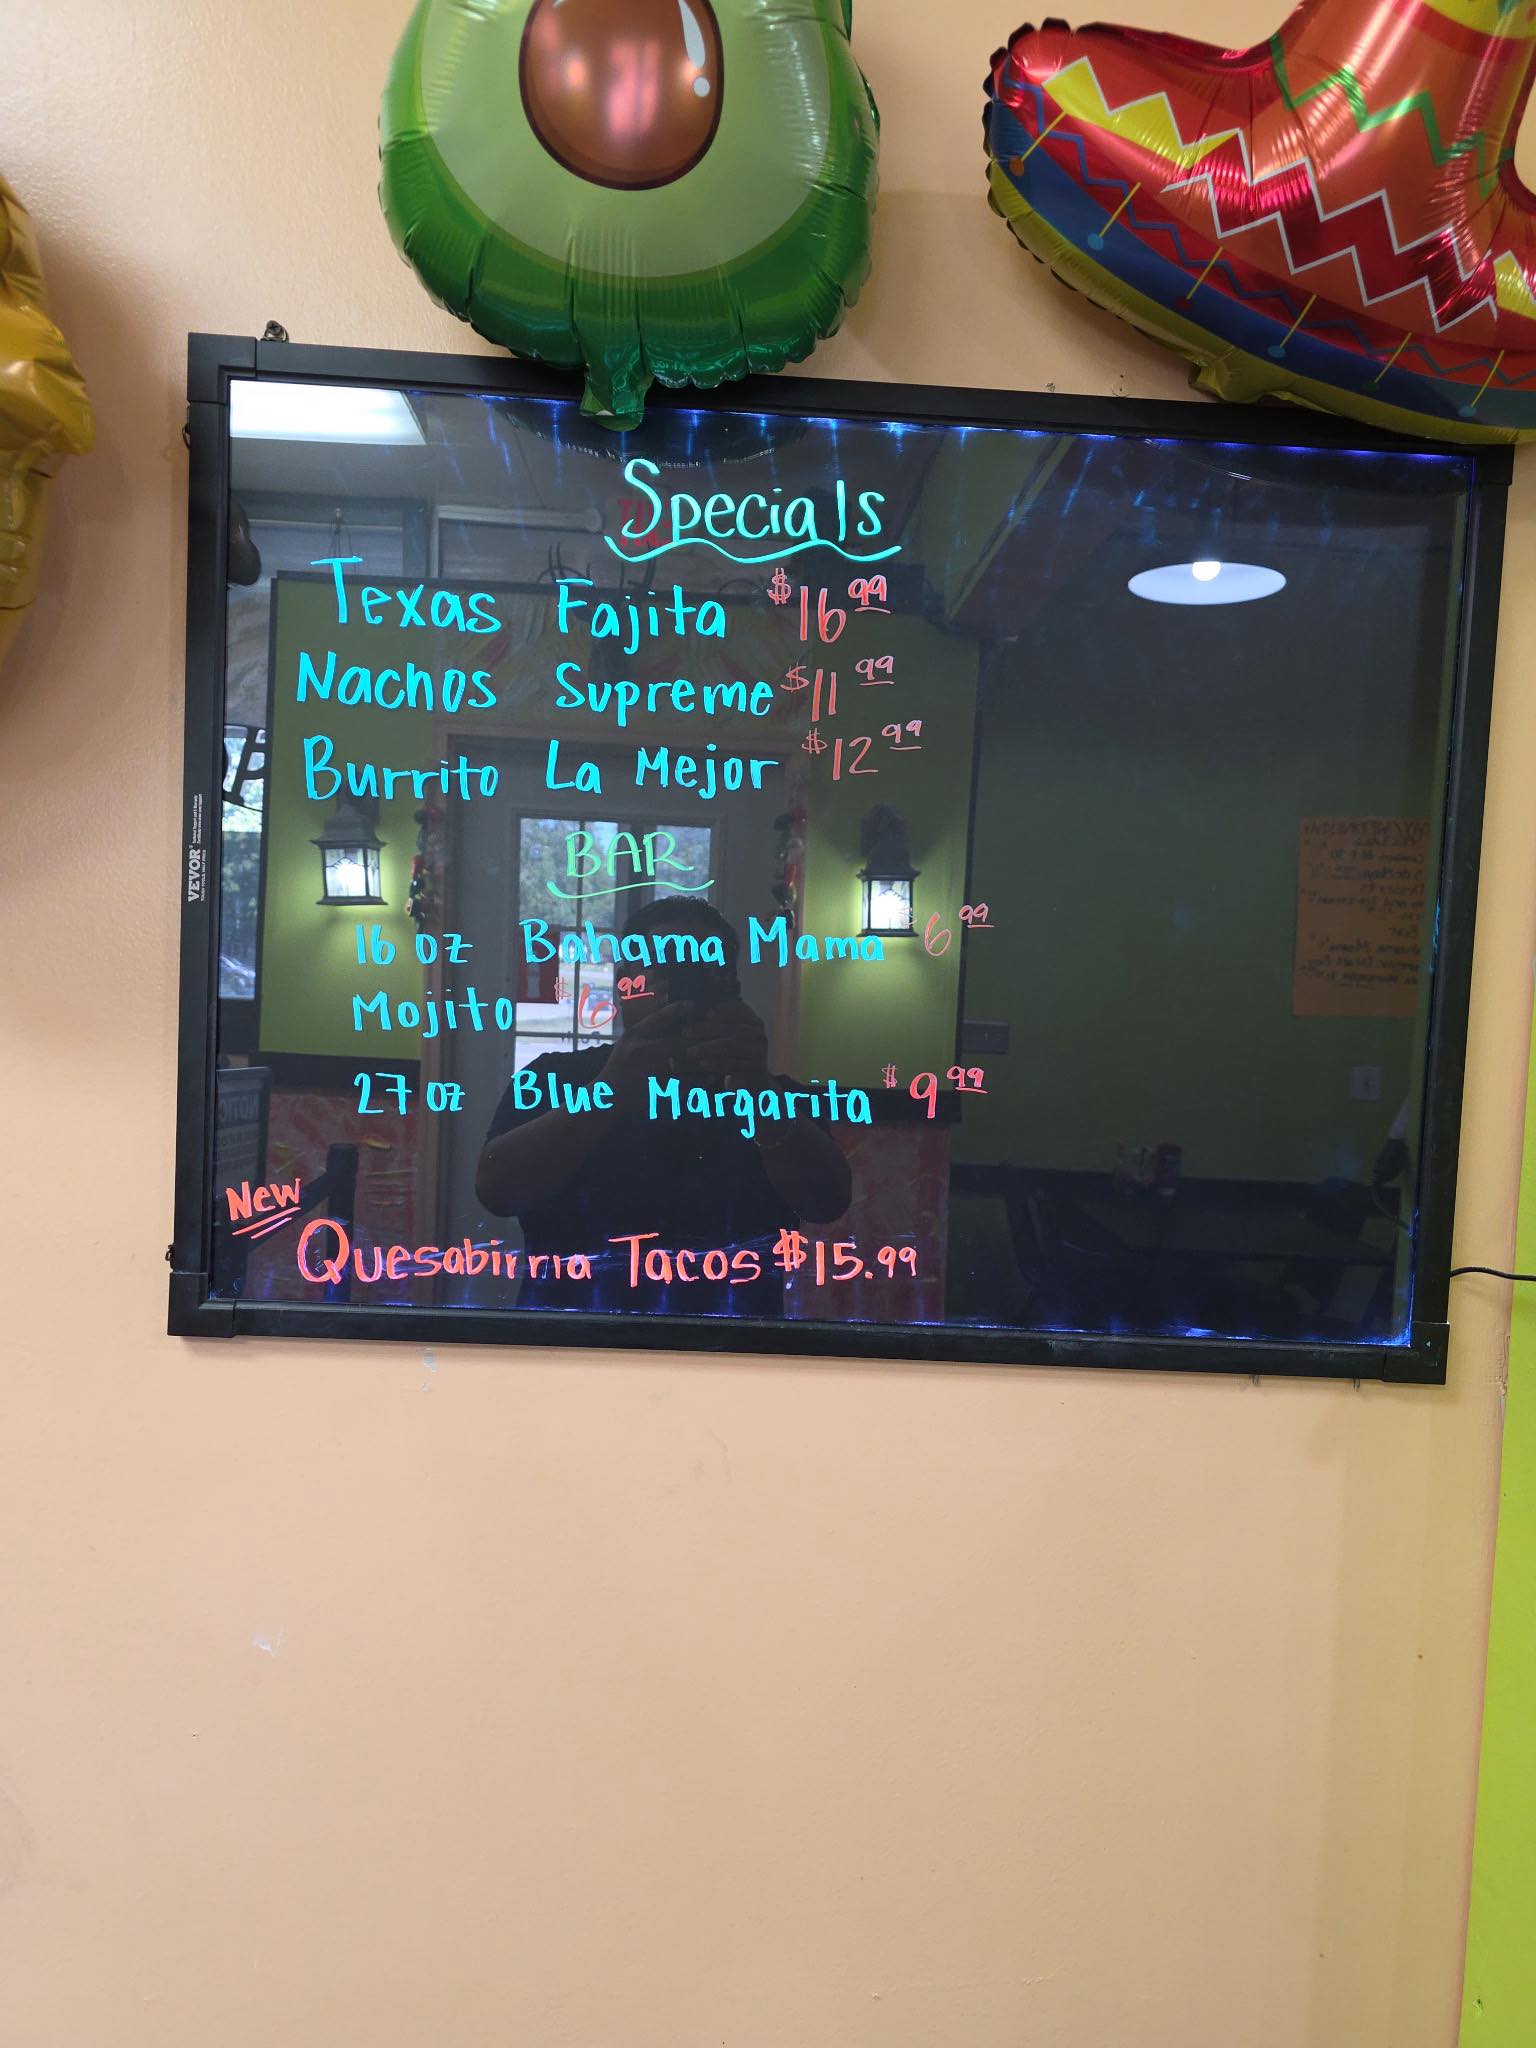 Specials
Texas Fajita $16.99
Nachos Supreme $11.99
Burrito La Mejor $12.99
BAR
16 oz Bahama Mama $6.99
Mojito $6.99
27 oz Blue Margarita $9.99
New
Quesabirria Tacos $15.99
VEVOR